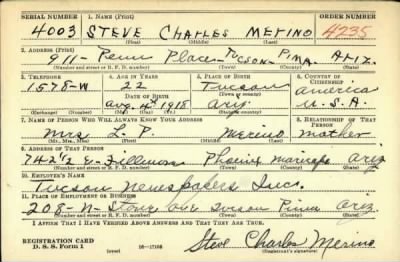 SERIAL NUMBER 1. NAME (Print) ORDER NUMBER
4003 STEVE CHARLES MERINO 4235
(First) (Middle) (Last)
2. ADDRESS (Print)
911 - Penn Place - TUCSON - PIMA ARIZ.
(Number and street or R. F. D. number) (Town) (County) (State)
3. TELEPHONE 4. AGE IN YEARS 5. PLACE OF BIRTH 6. COUNTRY OF CITIZENSHIP
1578-W 22 Tucson America
DATE OF BIRTH (Town or county)
Aug. 4th 1918 Ariz U.S.A.
(Exchange) (Number) (Mo.) (Day) (Yr.) (State or country)
7. NAME OF PERSON WHO WILL ALWAYS KNOW YOUR ADDRESS 8. RELATIONSHIP OF THAT PERSON
Mrs L. P. Merino mother
(Mr., Mrs., Miss) (First) (Middle) (Last)
9. ADDRESS OF THAT PERSON
742 1/2 E. Fillmore Phoenix Maricopa Ariz
(Number and street or R. F. D. number) (Town) (County) (State)
10. EMPLOYER'S NAME
Tucson Newspapers Inc.
11. PLACE OF EMPLOYMENT OR BUSINESS
208-N-Stone Ave Tucson Pima Ariz.
(Number and street or R. F. D. number) (Town) (County) (State)
I AFFIRM THAT I HAVE VERIFIED ABOVE ANSWERS AND THAT THEY ARE TRUE.
REGISTRATION CARD
D. S. S. Form 1 16-17105
Steve Charles Merino
(Registrant's signature)